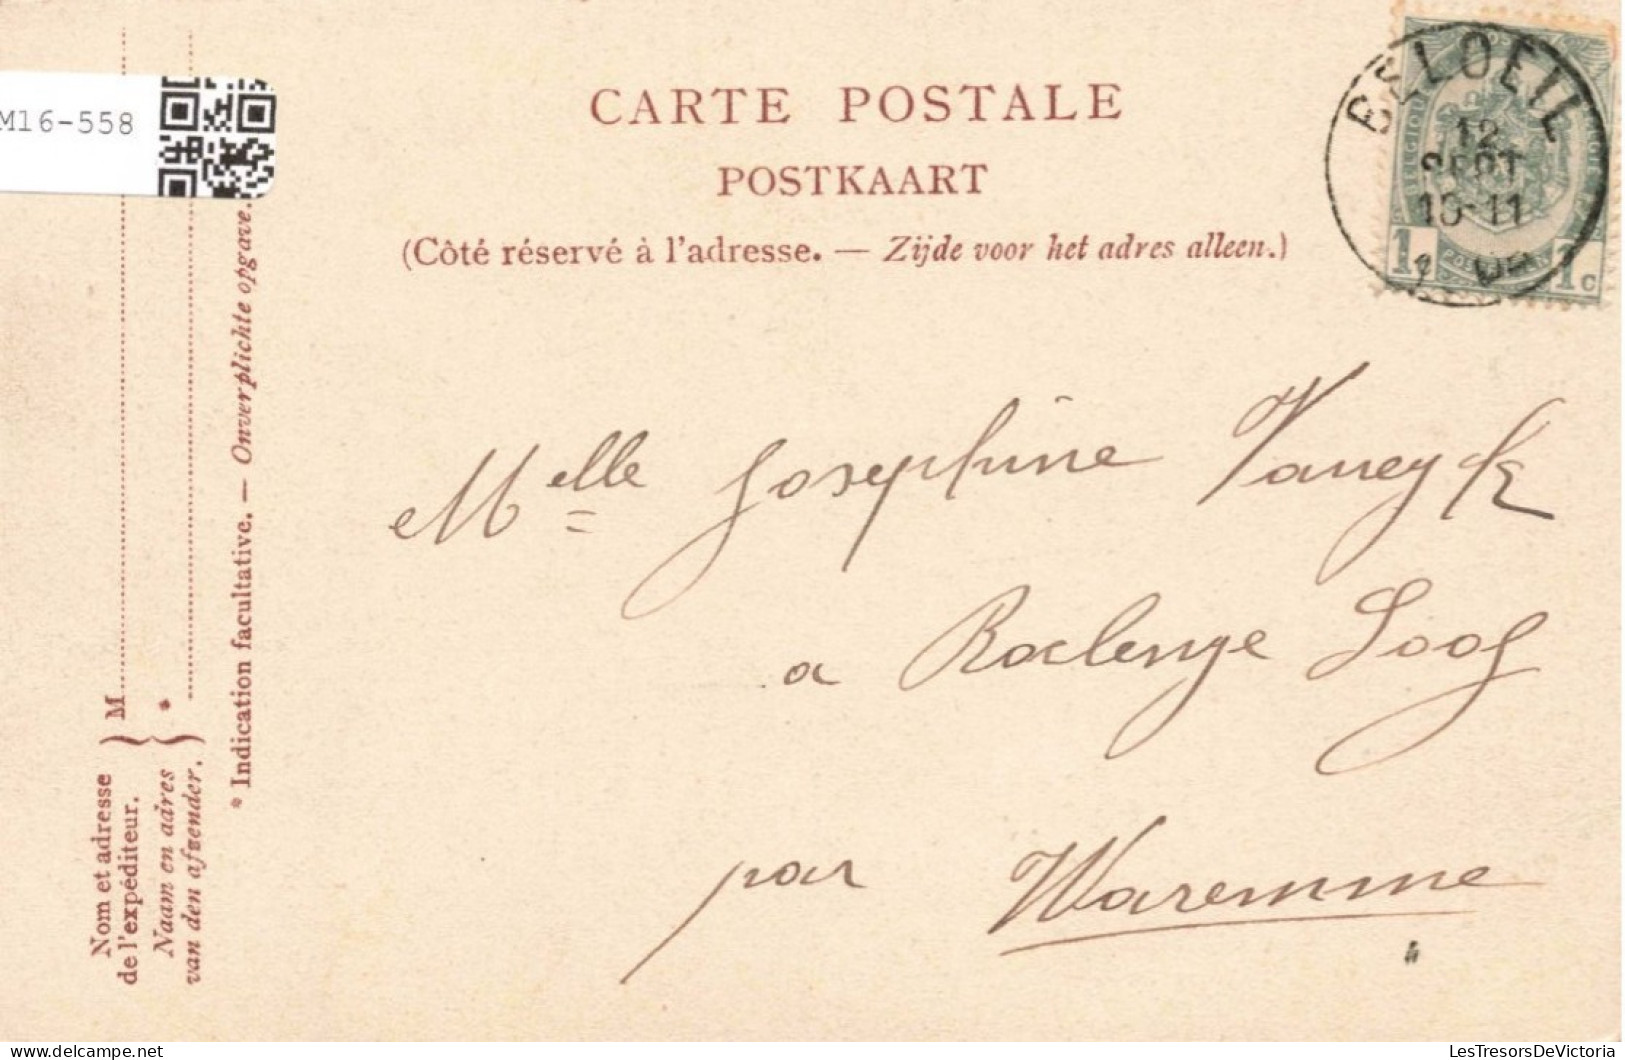 M16-558
CARTE POSTALE
POSTKAART
(Côté réservé à l'adresse. — Zijde voor het adres alleen.)
BELOEIL
12
SEPT
10-11
BELGIQUE
1
1c
Melle Josephine Vaneyck
a Roclenge Looz
par Waremme
M
*
Nom et adresse
de l'expéditeur.
Naam en adres
van den afzender.
* Indication facultative. — Onverplichte opgave.
LesTresorsDeVictoria